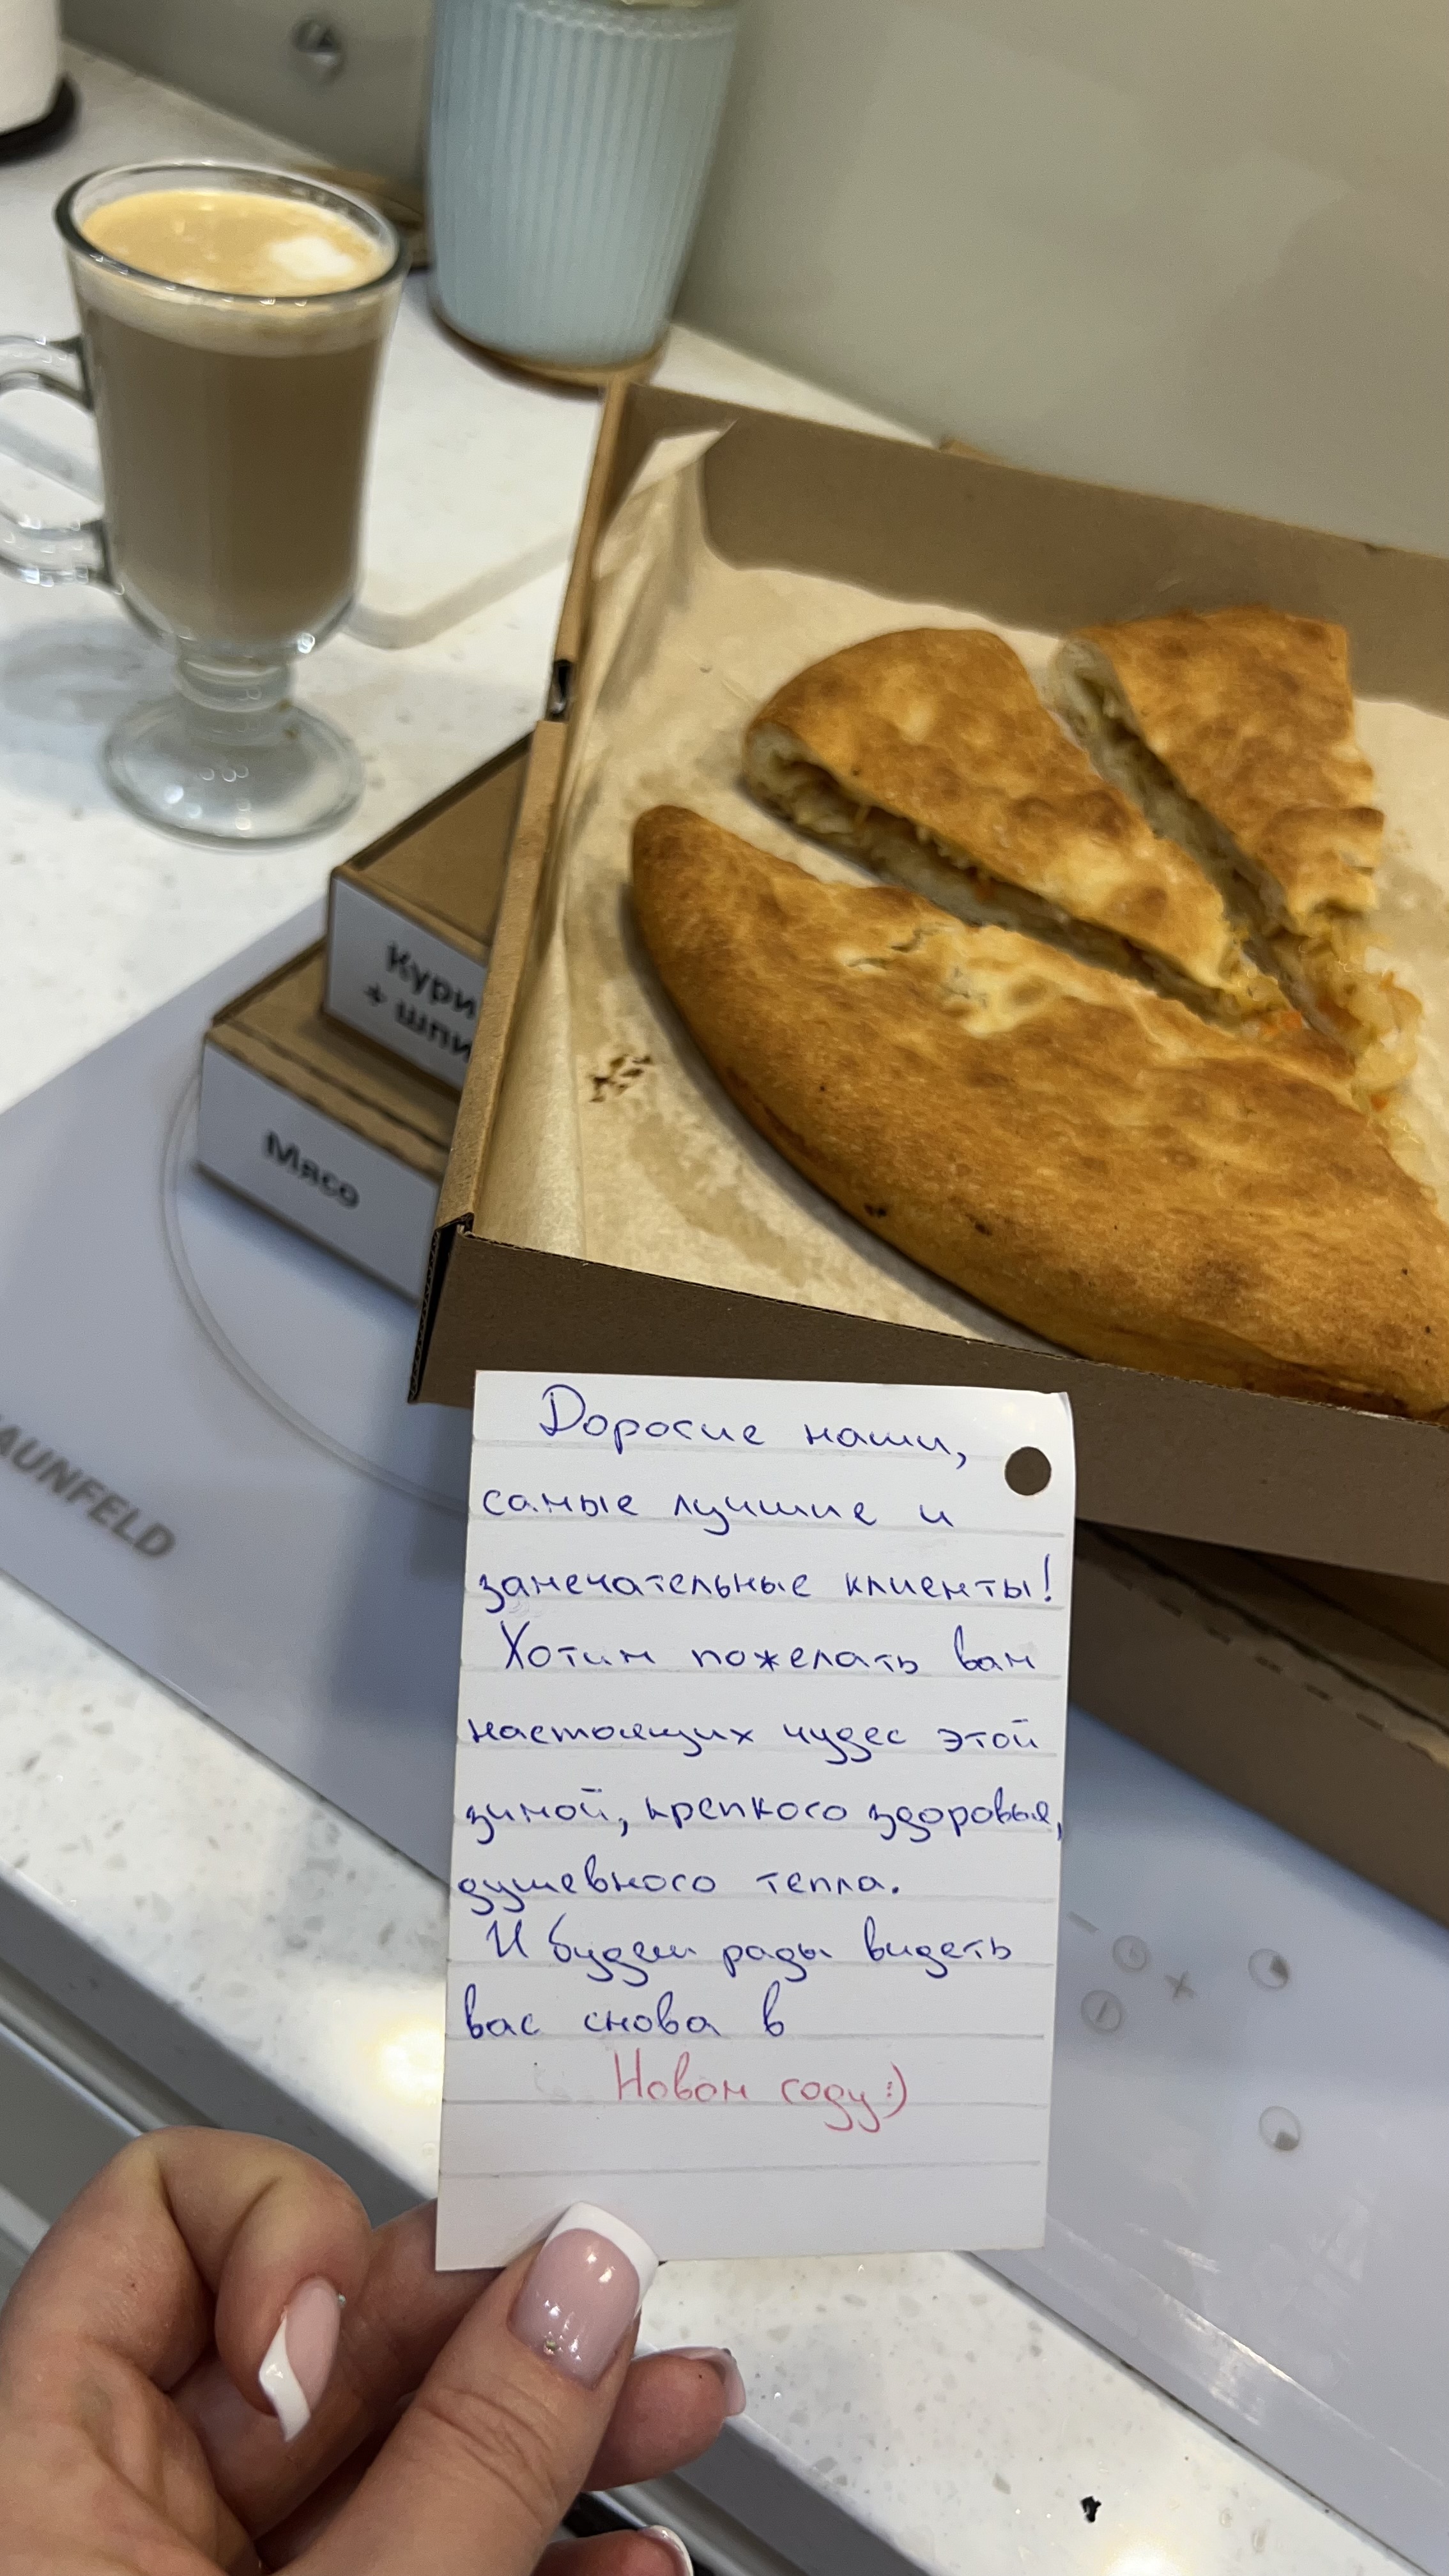 Кури
+ шпи
Мясо
AUNFELD
Дорогие наши,
самые лучшие и
замечательные клиенты!
Хотим пожелать вам
настоящих чудес этой
зимой, крепкого здоровья,
душевного тепла.
И будем рады видеть
вас снова в
Новом году :)